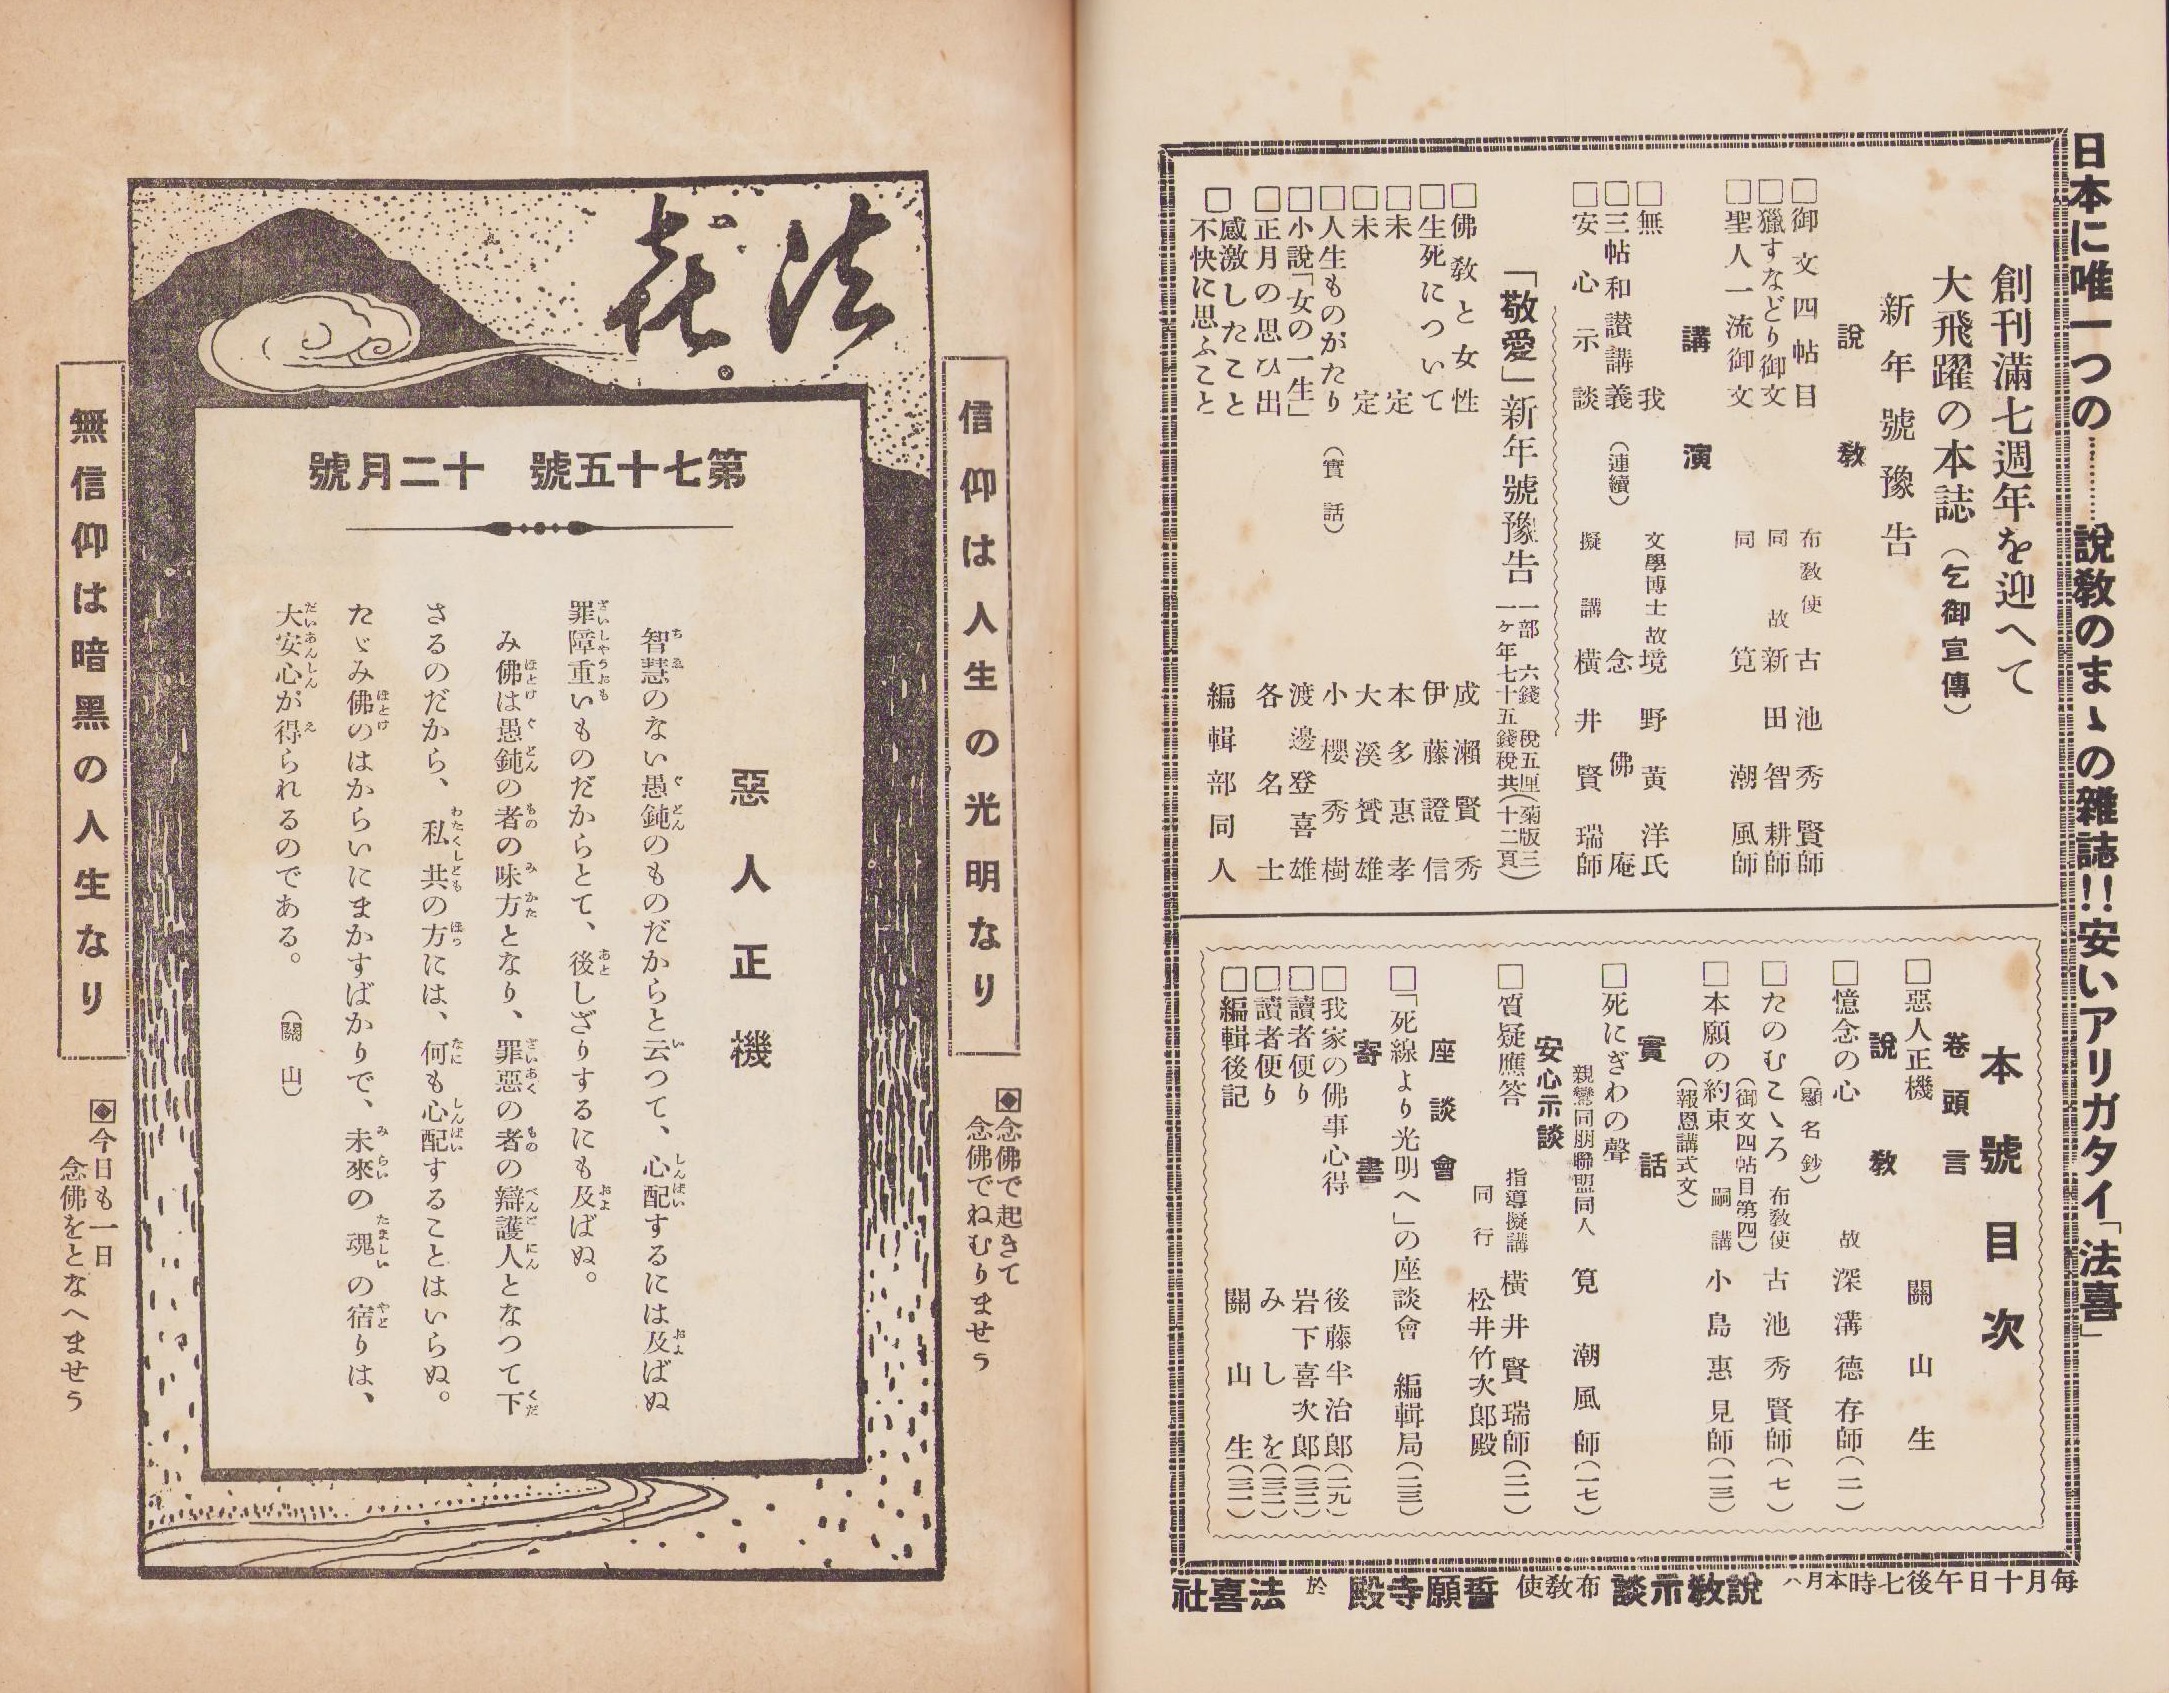 日本に唯一つの…………說教のまゝの雜誌!!安いアリガタイ「法喜」
創刊滿七週年を迎へて
大飛躍の本誌（乞御宣傳）
新年號豫告
說敎
□御文四帖目　布敎使　古池秀賢師
□獵すなどり御文　同　故　新田智耕師
□聖人一流御文　同　筧潮風師
講演
□無我　文學博士　故　境野黃洋氏
□三帖和讃講義（連續）　念佛庵
□安心示談　擬講　橫井賢瑞師
「敬愛」新年號豫告
一部　六錢　稅五厘（菊版三
一ヶ年七十五錢稅共（十二頁）
□佛敎と女性　成瀨賢秀
□生死について　伊藤證信
□未定　本多惠孝
□未定　大溪贊雄
□人生ものがたり（實話）　小櫻秀樹
□小說「女の一生」　渡邊登喜雄
□正月の思ひ出　各名士
□感激したこと
不快に思ふこと　編輯部同人
本號目次
卷頭言
□惡人正機　關山生
說敎
□憶念の心　故　深溝德存師（一）
（顯名鈔）
□たのむこゝろ　布敎使　古池秀賢師（七）
（御文四帖目第四）
□本願の約束　嗣講　小島惠見師（一三）
（報恩講式文）
實話
□死にぎわの聲　筧潮風師（一七）
親鸞同朋聯盟同人
安心示談
□質疑應答　指導擬講　橫井賢瑞師（二一）
同行　松井竹次郎殿
座談會
□「死線より光明へ」の座談會　編輯局（二三）
寄書
□我家の佛事心得　後藤半治郎（二九）
□讀者便り　岩下喜次郎（三二）
□讀者便り　みしを（三二）
□編輯後記　關山生（三一）
每月十日午後七時本月八　說敎示談　布敎使　誓願寺殿　於　法喜社
信仰は人生の光明なり
念佛で起きて
念佛でねむりませう
法喜
第七十五號　十二月號
惡人正機
智慧のない愚鈍のものだからと云つて、心配するには及ばぬ
罪障重いものだからとて、後しざりするにも及ばぬ。
み佛は愚鈍の者の味方となり、罪惡の者の辯護人となつて下
さるのだから、私共の方には、何も心配することはいらぬ。
たゞみ佛のはからいにまかすばかりで、未來の魂の宿りは、
大安心が得られるのである。（關山）
無信仰は暗黑の人生なり
今日も一日
念佛をとなへませう